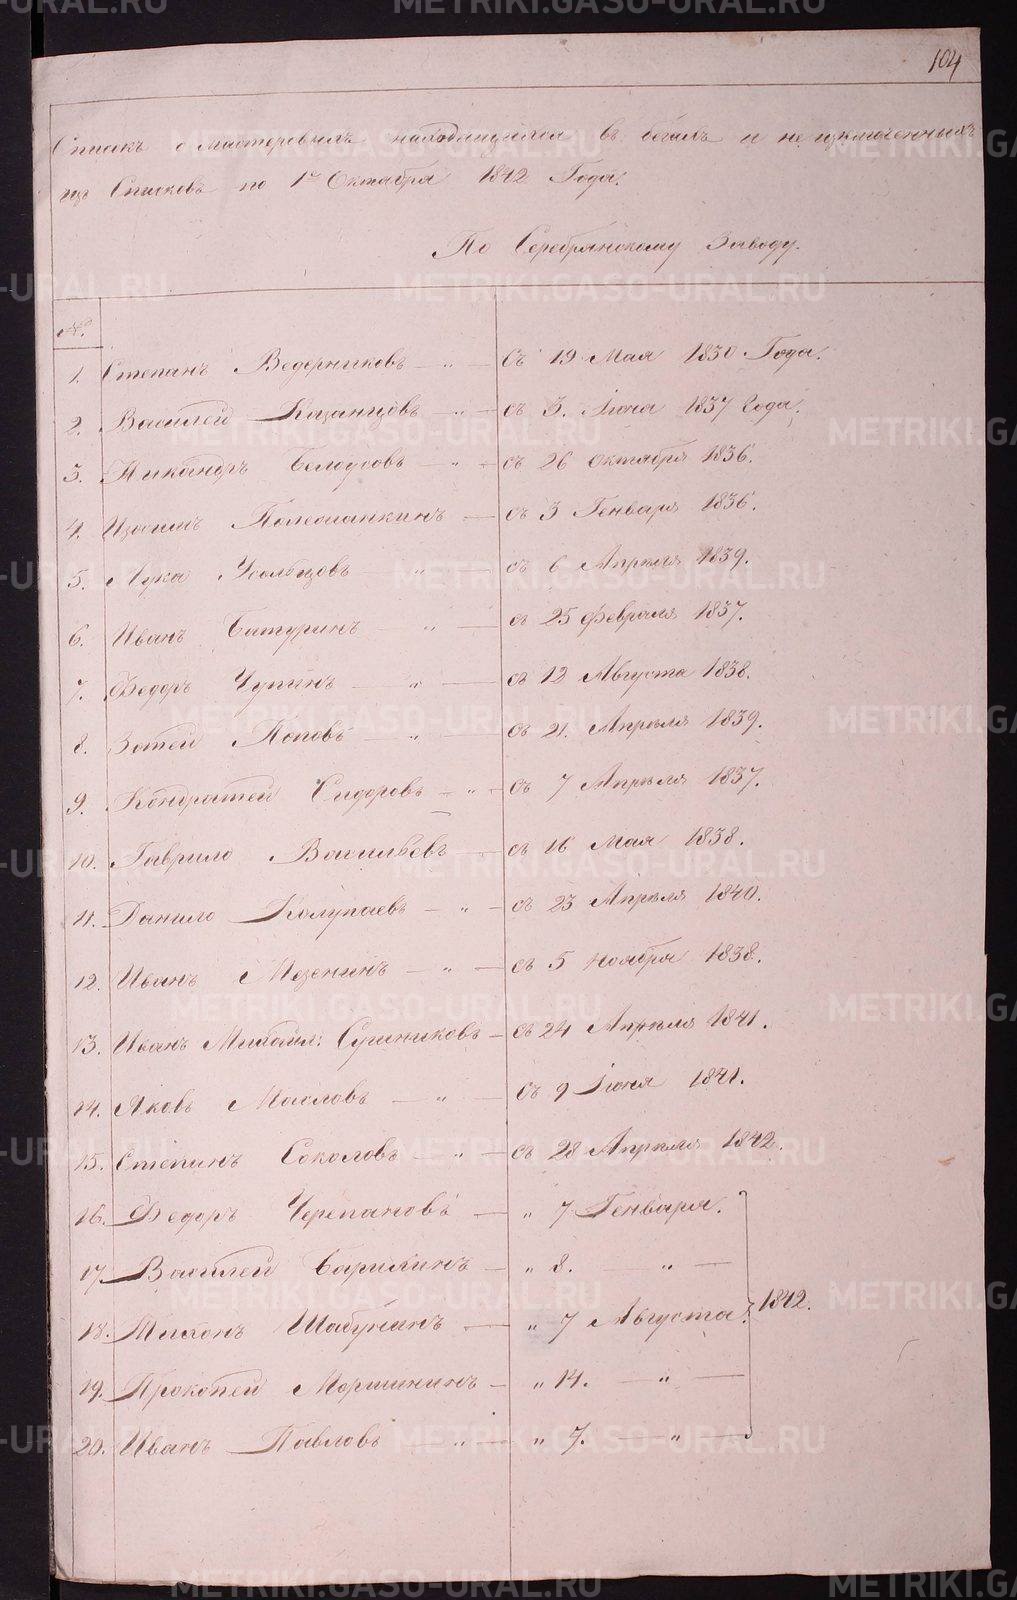 104
Списокъ о мастеровыхъ находящихся въ бегахъ и не исключенныхъ
изъ Списковъ по 1е Октября 1842 Года.
По Серебрянскому Заводу.
№.
1. Степанъ Ведерниковъ — „ — Съ 19 Мая 1830 Года.
2. Василей Казанцовъ „ — съ 3. Июня 1837 Года.
3. Никандръ — „ — съ 26 Октября 1836.
4. — съ 3 Генваря 1836.
5. Лука Усольцовъ — „ — съ 6 Апреля 1839.
6. Иванъ Батуринъ — „ — съ 25 Февраля 1837.
7. Федоръ Чупинъ — „ — съ 12 Августа 1838.
8. Зотей Поповъ — „ — съ 21. Апреля 1839.
9. Кондратей Сидоровъ — „ — съ 7 Апреля 1837.
10. Гаврило Васильевъ — съ 16 Мая 1838.
11. Данило Колупаевъ — „ — съ 23 Апреля 1840.
12. Иванъ Мезенинъ — „ — съ 5 Ноября 1838.
13. Иванъ Михайл: — съ 24 Апреля 1841.
14. Яковъ Масловъ — „ — съ 9 Июня 1841.
15. Степанъ Соколовъ — „ — съ 28 Апреля 1842.
16. Федоръ Черепановъ — „ 7 Генваря.
17. Василей — „ 8. — „ —
18. Тихонъ Шабунинъ — „ 7 Августа. 1842.
19. Прокопей Моршининъ — „ 14. — „ —
20. Иванъ Павловъ — „ — „ 7. — „ —
METRIKI.GASO-URAL.RU